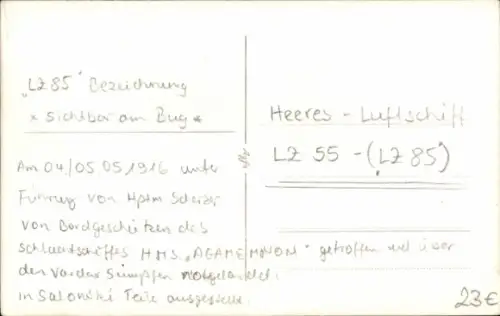 „LZ85" Bezeichnung
x sichtbar am Bug x
Heeres - Luftschiff
LZ 55 - („LZ 85")
Am 04/05 05 1916 unter
Führung von Hptm Scherzer
von Bordgeschützen des
Schlachtschiffes HMS „AGAMEMNON" getroffen und über
den Vardar Sümpfen notgelandet.
in Saloniki Teile ausgestellt.
23€